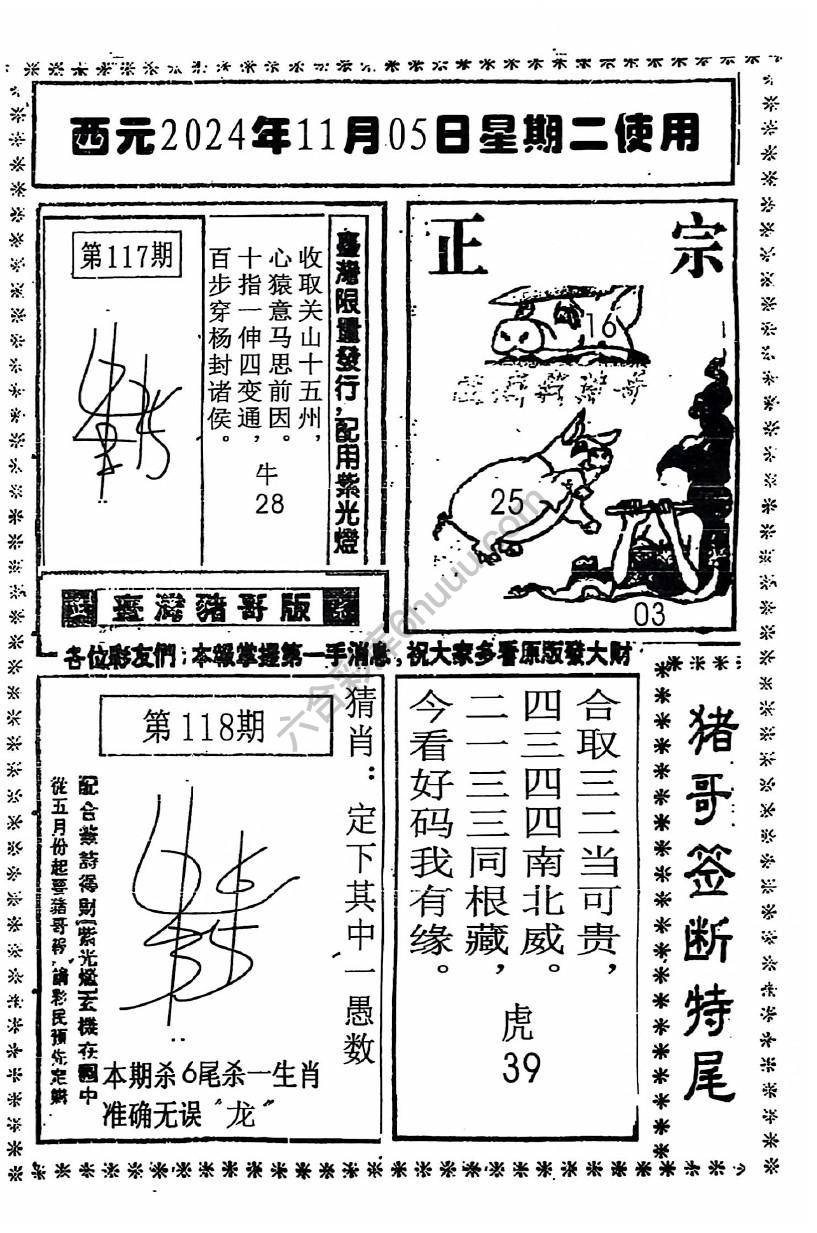 西元2024年11月05日星期二使用
第117期
收取关山十五州，
心猿意马思前因。
十指一伸四变通，
百步穿杨封诸侯。
牛
28
臺灣限量發行，配用紫光燈
臺灣豬哥版
正宗
16
25
03
各位彩友們；本報掌握第一手消息，祝大家多看原版發大財
第118期
猜肖：定下其中一愚数
從五月份起要豬哥報，請彩民預先定購
本期杀6尾杀一生肖
准确无误“龙”
合取三二当可贵，
四三四四南北威。
二一三三同根藏，
今看好码我有缘。
虎
39
猪哥签断特尾